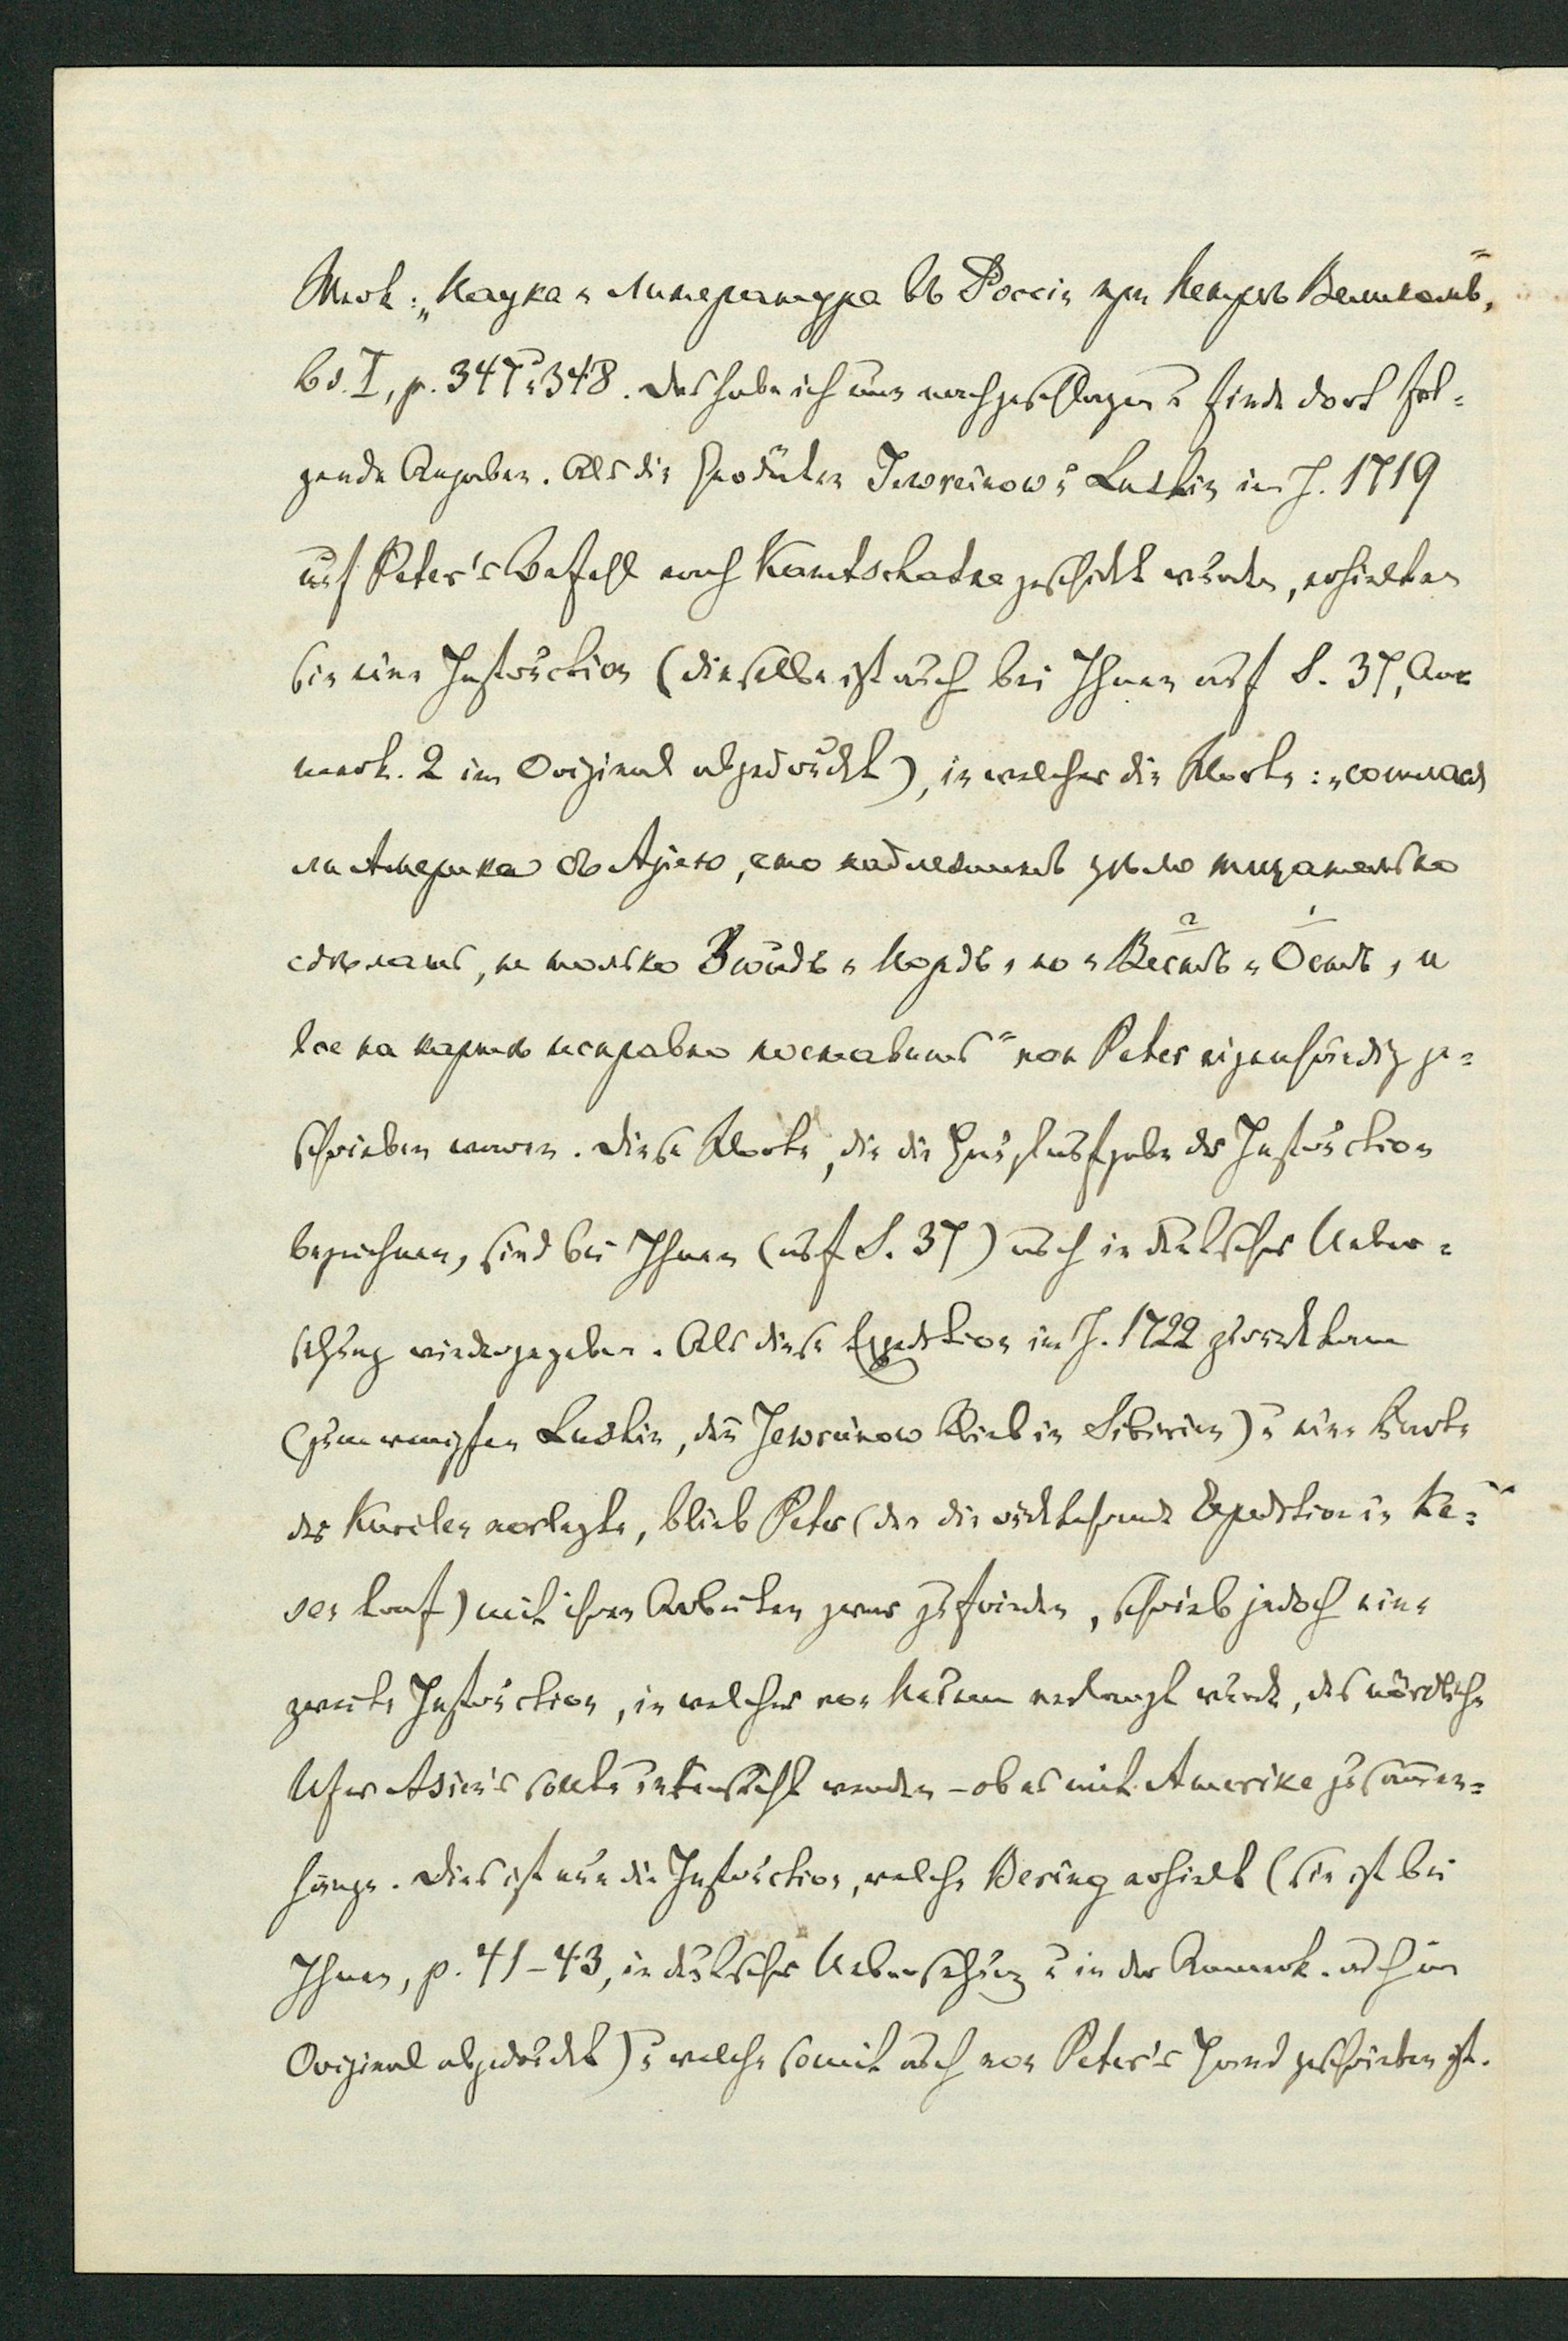 Werk: „Наука и литература въ Россіи при Петрѣ Великомъ“,
bd. I, p. 347 u 348. Das habe ich nun nachgeschlagen u finde dort fol-
gende Angaben. Als die Geodäten Jewreinow u Lushin im J. 1719
auf Peter's Befehl nach Kamtschatka geschickt wurden, erhielten
sie eine Instruction (dieselbe ist auch bei Ihnen auf S. 37, An-
merk. 2 im Original abgedruckt), in welcher die Worte: „сошлася
ли Америка съ Азіею, что надлежитъ зѣло тщательно
сдѣлать, не только Зюйдъ и Нордъ, но и Вестъ и Остъ, и
все на картѣ исправно поставить“ von Peter eigenhändig ge-
schrieben waren. Diese Worte, die die Hauptaufgabe der Instruction
bezeichnen, sind bei Ihnen (auf S. 37) auch in deutscher Ueber-
setzung wiedergegeben. Als diese Expedition im J. 1722 zurückkam
(zum wenigsten Lushin, denn Jewreinow blieb in Sibirien) u eine Karte
der Kurilen vorlegte, blieb Peter (der die rückkehrende Expedition in Ka-
san traf) mit ihren Arbeiten zwar zufrieden, schrieb jedoch eine
zweite Instruction, in welcher von Neuem verlangt wurde, das nördliche
Ufer Asien's sollte untersucht werden – ob es mit Amerika zusammen-
hänge. Dies ist nun die Instruction, welche Bering erhielt (sie ist bei
Ihnen, p. 41–43, in deutscher Uebersetzung u in der Anmerk. auch im
Original abgedruckt) u welche somit auch von Peter's Hand geschrieben ist.